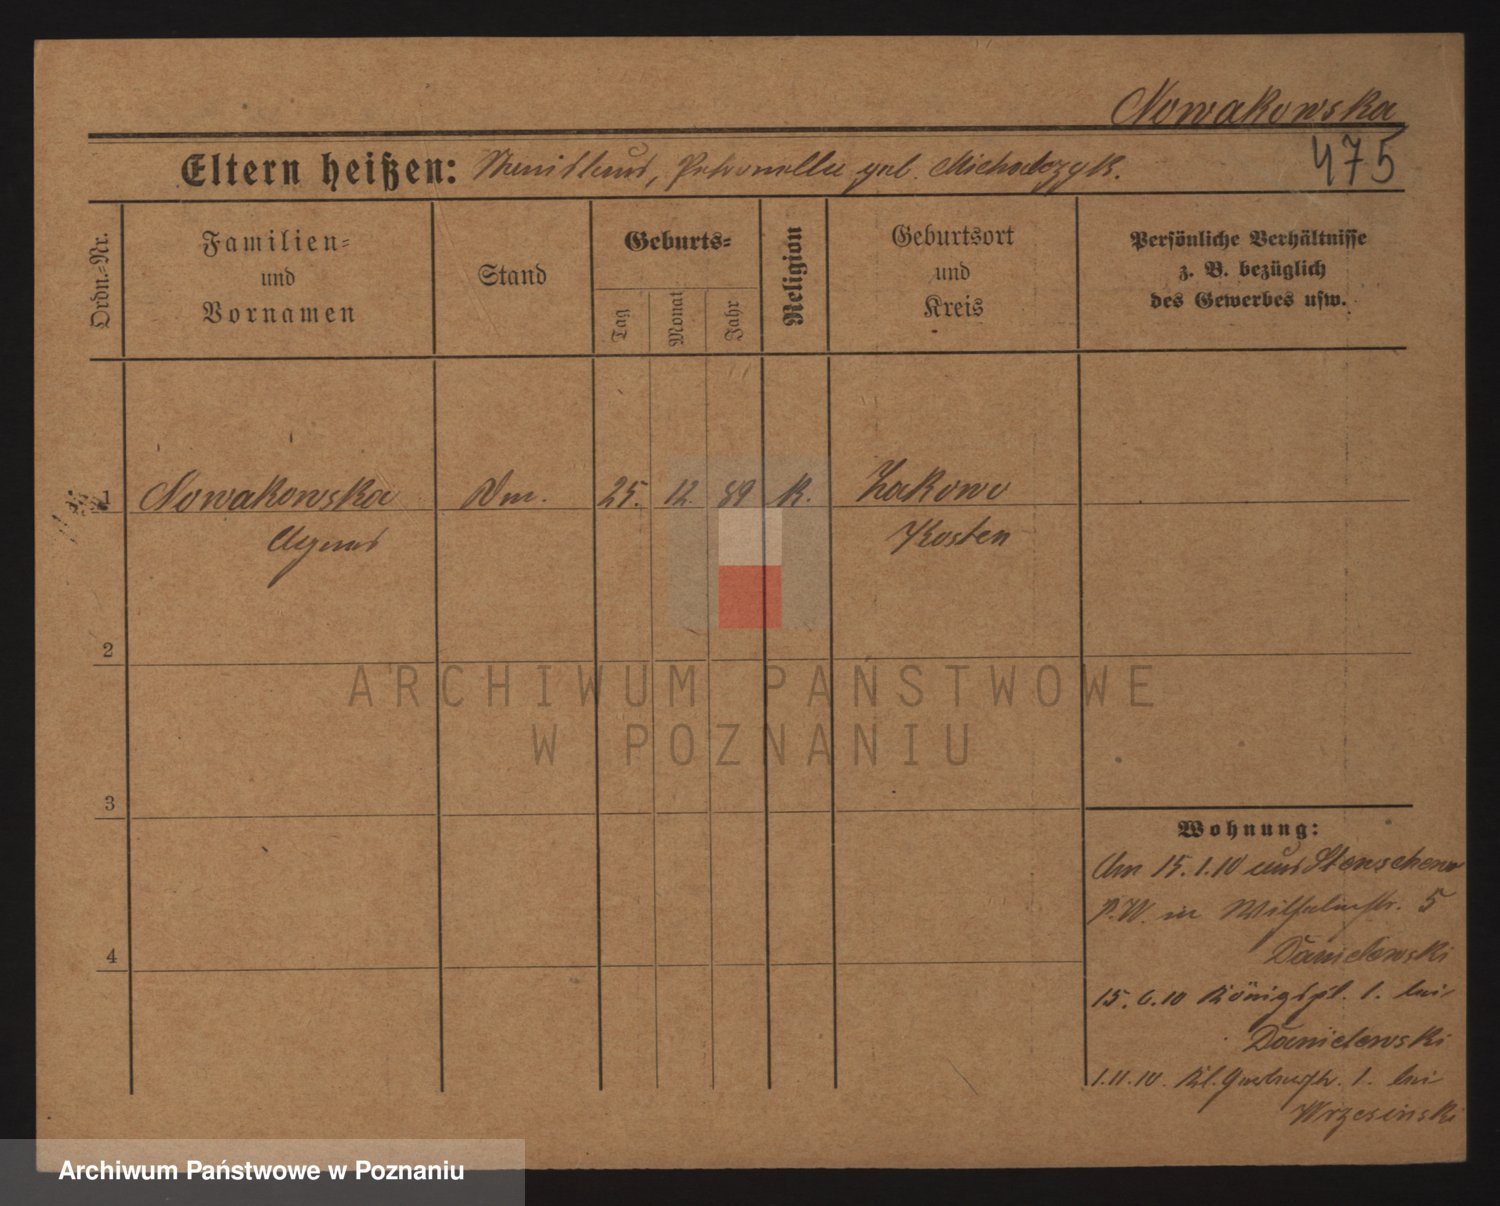 Nowakowska
475
Eltern heißen: Stanislaus, Petronella geb. Michalczyk.
Ordn.-Nr.
Familien-
und
Vornamen
Stand
Geburts-
Tag
Monat
Jahr
Religion
Geburtsort
und
Kreis
Persönliche Verhältnisse
z. B. bezüglich
des Gewerbes usw.
1
Nowakowska
Agnes
Dm.
25.
12.
89
K.
Zakowo
Kosten
2
3
4
Wohnung:
Am 15.1.10 aus Stenschewo
P.W. in Wilhelmstr. 5
Danielewski
15.6.10 Königspl. 1. bei
Danielewski
1.11.10. Kl. Gerberstr. 1. bei
Wrzesinski
ARCHIWUM PAŃSTWOWE
W POZNANIU
Archiwum Państwowe w Poznaniu